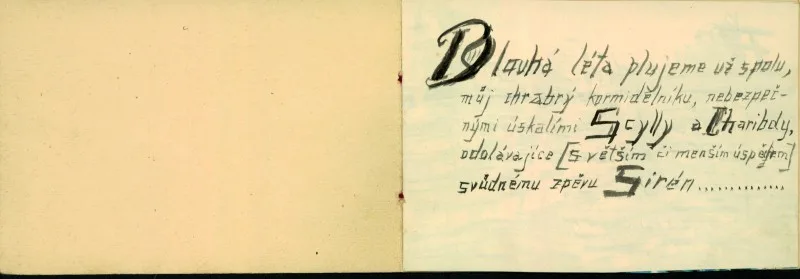 Dlouhá léta plujeme už spolu,
můj chrabrý kormidelníku, nebezpeč-
nými úskalími Scylly a Charibdy,
odolávajíce [s větším či menším úspěchem]
svůdnému zpěvu Sirén..............